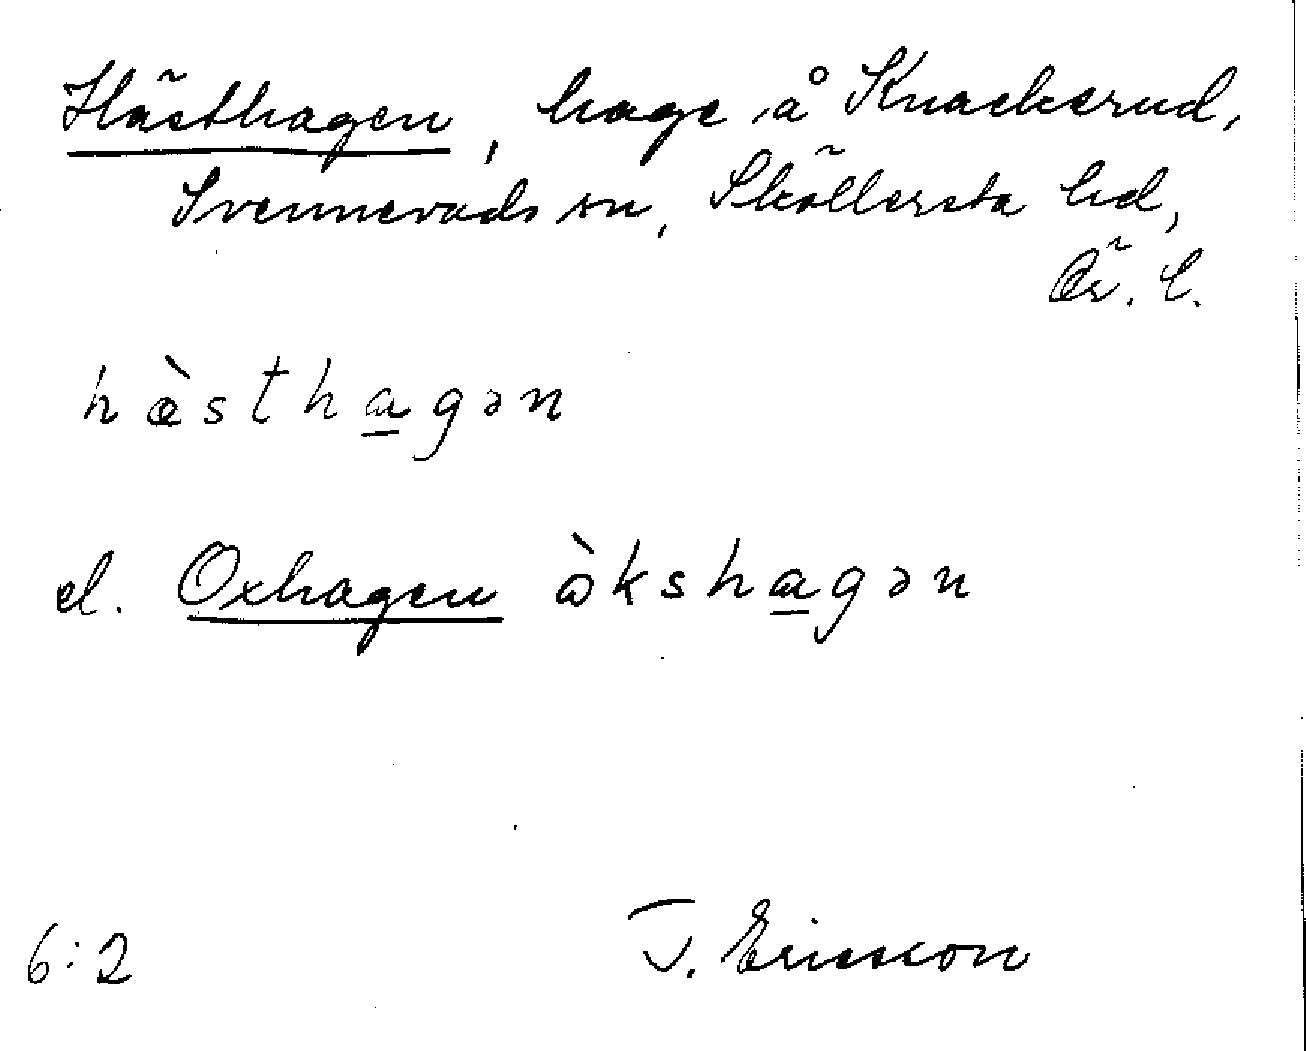 Hästhagen, hage å Knackerud,
Svennevads sn, Sköllersta hd,
Ör. l.
hæ̀stha̲gən
el. Oxhagen ὼksha̲gən
6:2 J. Ericsson